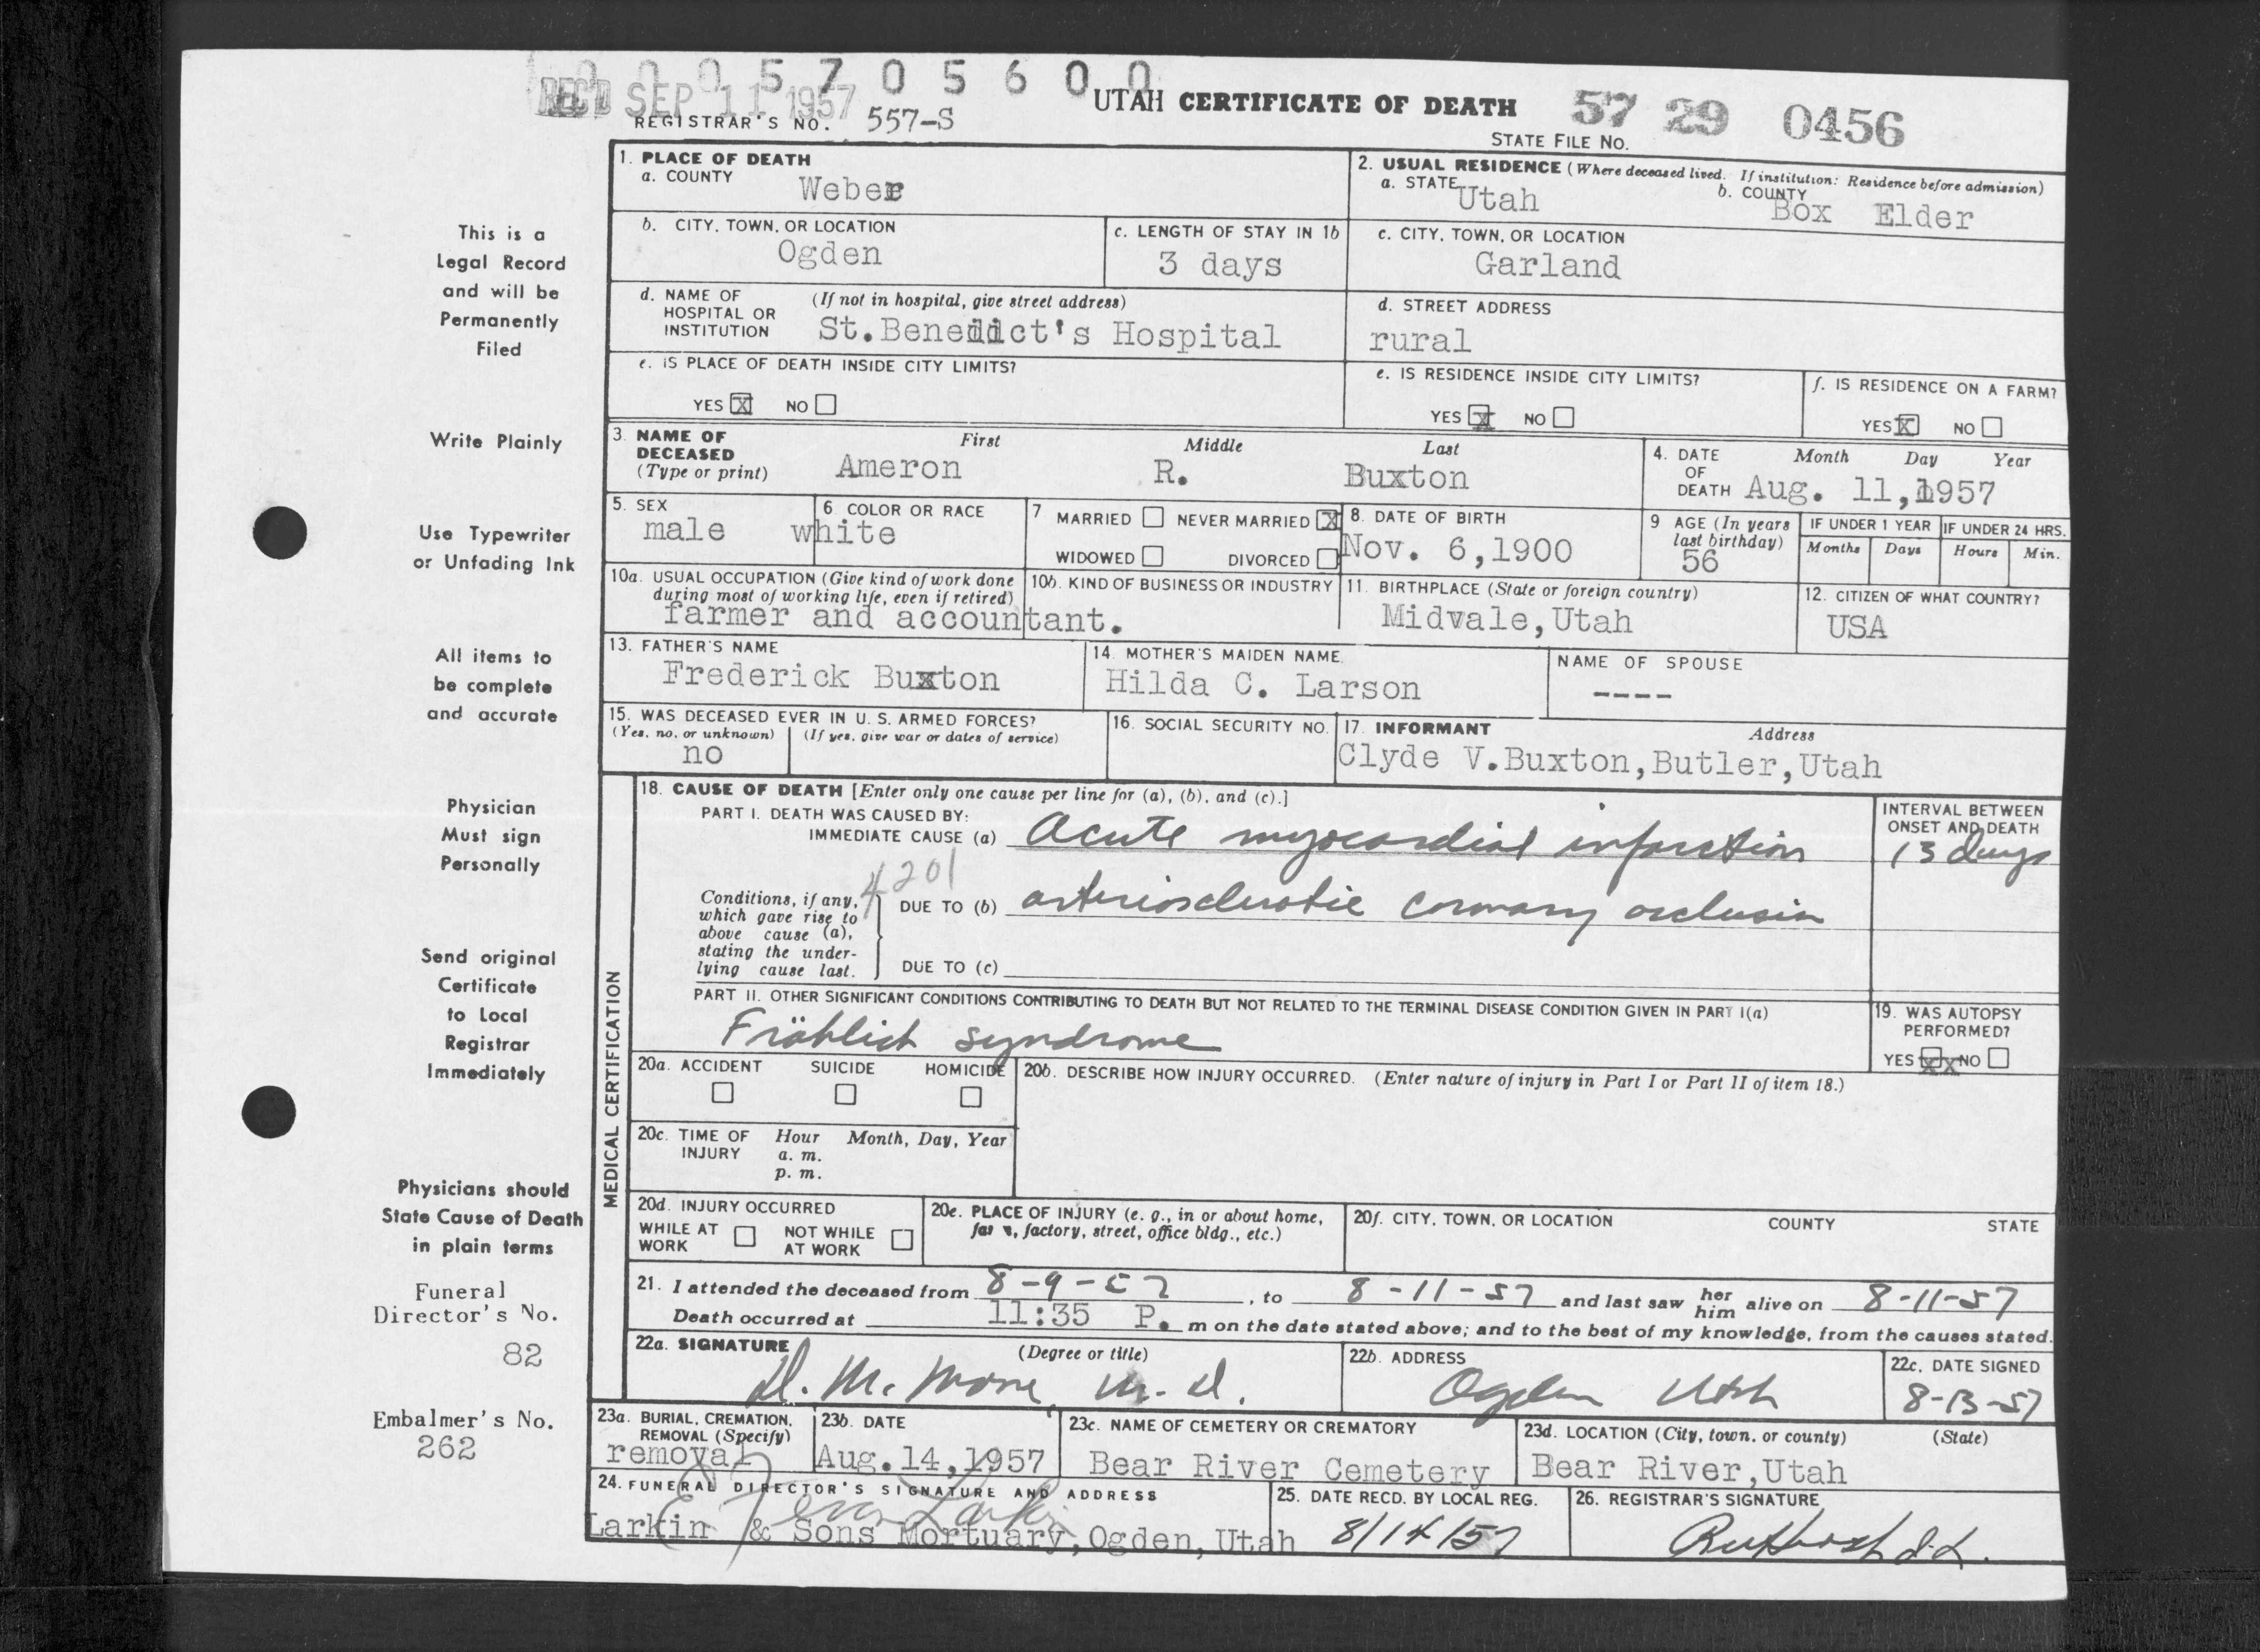 0 0 0 5 7 0 5 6 0 0
REC'D SEP 11 1957
UTAH CERTIFICATE OF DEATH 57 29 0456
REGISTRAR'S NO. 557-S
STATE FILE NO.
1. PLACE OF DEATH
a. COUNTY
Weber
2. USUAL RESIDENCE (Where deceased lived. If institution: Residence before admission)
a. STATE Utah b. COUNTY Box Elder
This is a
Legal Record
and will be
Permanently
Filed
b. CITY, TOWN, OR LOCATION
Ogden
c. LENGTH OF STAY IN 1b
3 days
c. CITY, TOWN, OR LOCATION
Garland
d. NAME OF HOSPITAL OR INSTITUTION (If not in hospital, give street address)
St.Benedict's Hospital
d. STREET ADDRESS
rural
e. IS PLACE OF DEATH INSIDE CITY LIMITS?
YES X NO
e. IS RESIDENCE INSIDE CITY LIMITS?
YES X NO
f. IS RESIDENCE ON A FARM?
YES X NO
Write Plainly
3. NAME OF DECEASED (Type or print)
First Middle Last
Ameron R. Buxton
4. DATE OF DEATH Month Day Year
Aug. 11,1957
Use Typewriter
or Unfading Ink
5. SEX
male
6. COLOR OR RACE
white
7 MARRIED NEVER MARRIED X
WIDOWED DIVORCED
8. DATE OF BIRTH
Nov. 6,1900
9 AGE (In years last birthday)
56
IF UNDER 1 YEAR IF UNDER 24 HRS.
Months Days Hours Min.
10a. USUAL OCCUPATION (Give kind of work done during most of working life, even if retired)
10b. KIND OF BUSINESS OR INDUSTRY
farmer and accountant.
11. BIRTHPLACE (State or foreign country)
Midvale,Utah
12. CITIZEN OF WHAT COUNTRY?
USA
All items to
be complete
and accurate
13. FATHER'S NAME
Frederick Buxton
14. MOTHER'S MAIDEN NAME
Hilda C. Larson
NAME OF SPOUSE
----
15. WAS DECEASED EVER IN U. S. ARMED FORCES?
(Yes, no, or unknown) (If yes, give war or dates of service)
no
16. SOCIAL SECURITY NO.
17. INFORMANT Address
Clyde V.Buxton,Butler,Utah
Physician
Must sign
Personally
MEDICAL CERTIFICATION
18. CAUSE OF DEATH [Enter only one cause per line for (a), (b), and (c).]
PART I. DEATH WAS CAUSED BY:
IMMEDIATE CAUSE (a) Acute myocardial infarction
INTERVAL BETWEEN ONSET AND DEATH
13 days
4201
Conditions, if any, which gave rise to above cause (a), stating the underlying cause last.
DUE TO (b) arteriosclerotic coronary occlusion
DUE TO (c)
Send original
Certificate
to Local
Registrar
Immediately
PART II. OTHER SIGNIFICANT CONDITIONS CONTRIBUTING TO DEATH BUT NOT RELATED TO THE TERMINAL DISEASE CONDITION GIVEN IN PART I(a)
Fröhlich syndrome
19. WAS AUTOPSY PERFORMED?
YES XX NO
20a. ACCIDENT SUICIDE HOMICIDE
20b. DESCRIBE HOW INJURY OCCURRED. (Enter nature of injury in Part I or Part II of item 18.)
20c. TIME OF INJURY Hour Month, Day, Year
a. m.
p. m.
Physicians should
State Cause of Death
in plain terms
20d. INJURY OCCURRED
WHILE AT WORK NOT WHILE AT WORK
20e. PLACE OF INJURY (e. g., in or about home, farm, factory, street, office bldg., etc.)
20f. CITY, TOWN, OR LOCATION COUNTY STATE
21. I attended the deceased from 8-9-57, to 8-11-57 and last saw her him alive on 8-11-57
Death occurred at 11:35 P. m on the date stated above; and to the best of my knowledge, from the causes stated.
Funeral
Director's No.
82
22a. SIGNATURE (Degree or title)
D. M. Moore, M.D.
22b. ADDRESS
Ogden Utah
22c. DATE SIGNED
8-13-57
Embalmer's No.
262
23a. BURIAL, CREMATION, REMOVAL (Specify)
removal
23b. DATE
Aug.14,1957
23c. NAME OF CEMETERY OR CREMATORY
Bear River Cemetery
23d. LOCATION (City, town, or county) (State)
Bear River,Utah
24. FUNERAL DIRECTOR'S SIGNATURE AND ADDRESS
Larkin
Larkin & Sons Mortuary,Ogden,Utah
25. DATE RECD. BY LOCAL REG.
8/14/57
26. REGISTRAR'S SIGNATURE